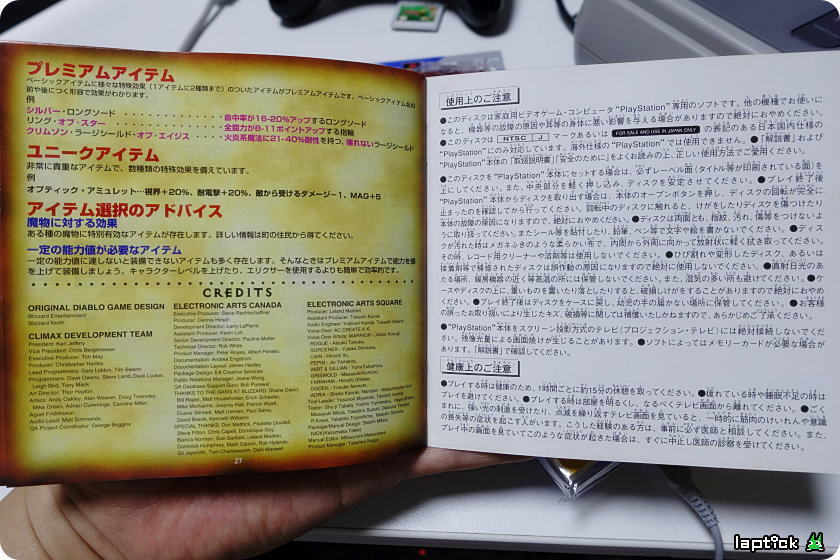 プレミアムアイテム
ベーシックアイテムに様々な特殊効果（1アイテムに2種類まで）のついたアイテムがプレミアムアイテムです。ベーシックアイテム名の
前や後につく形容で効果がわかります。
例
シルバー・ロングソード・・・命中率が16-20%アップするロングソード
リング・オブ・スター・・・全能力が8-11ポイントアップする指輪
クリムゾン・ラージシールド・オブ・エイジス・・・火炎系魔法に21-40%耐性を持つ、壊れないラージシールド
ユニークアイテム
非常に貴重なアイテムで、数種類の特殊効果を備えています。
例
オプティック・アミュレット…視界＋20%、耐電撃＋20%、敵から受けるダメージ－1、MAG＋5
アイテム選択のアドバイス
魔物に対する効果
ある種の魔物に特別有効なアイテムが存在します。詳しい情報は町の住民から得てください。
一定の能力値が必要なアイテム
一定の能力値に達しないと装備できないアイテムも多く存在します。そんなときはプレミアムアイテムで能力値を
上げて装備しましょう。キャラクターレベルを上げたり、エリクサーを使用するよりも簡単で効率的です。
CREDITS
ORIGINAL DIABLO GAME DESIGN
Blizzard Entertainment
Blizzard North
CLIMAX DEVELOPMENT TEAM
President: Karl Jeffery
Vice President: Chris Bergstresser
Executive Producer: Tim May
Producer: Christopher Hadley
Lead Programmers: Gary Liddon, Tim Swann
Programmers: Dave Owens, Steve Lamb, Dave Looker,
Leigh Bird, Tony Mack
Art Director: Thor Hayton
Artists: Andy Oakley, Alan Weaver, Doug Townsley,
Mike Green, Adrian Cummings, Caroline Miller,
Audio Lead: Matt Simmonds
QA Project Coordinator: George Buggins
ELECTRONIC ARTS CANADA
Executive Producer: Steve Rechtschaffner
Producer: Dennis Hirsch
Development Director: Larry LaPierre
Assistant Producer: Kevin Loh
Senior Development Director: Pauline Moller
Technical Director: Rob White
Product Manager: Peter Royea, Albert Penello
Documentation: Andrea Engstrom
Documentation Layout: James Henley
Package Design: EA Creative Services
Public Relations Manager: Jeane Wong
QA Database Support Guru: Bob Purewal
THANKS TO THE GANG AT BLIZZARD:
SPECIAL THANKS: Don Mattrick, Paulette Doudell,
ELECTRONIC ARTS SQUARE
Producer: Leland Madren
Assistant Producer: Takashi Kuroki
Voice Over: AC CREATE K.K.
27
使用上のご注意
●このディスクは家庭用ビデオゲーム・コンピュータ"PlayStation"専用のソフトです。他の機種でお使いに
なると、機器等の故障の原因や耳等の身体に悪い影響を与える場合がありますので絶対におやめください。
●このディスクは NTSC J マークあるいは FOR SALE AND USE IN JAPAN ONLY の表記のある日本国内仕様の
"PlayStation"にのみ対応しています。海外仕様の"PlayStation"では使用できません。●「解説書」および
"PlayStation"本体の「取扱説明書」「安全のために」をよくお読みの上、正しい使用方法でご愛用ください。
●このディスクを"PlayStation"本体にセットする場合は、必ずレーベル面(タイトル等が印刷されている面)を
上にしてください。また、中央部分を軽く押し込み、ディスクを安定させてください。●プレイ終了後
"PlayStation"本体からディスクを取り出す場合は、本体のオープンボタンを押し、ディスクの回転が完全に
止まったのを確認してから行ってください。回転中のディスクに触れると、けがをしたりディスクを傷つけたり
本体の故障の原因になりますので、絶対におやめください。●ディスクは両面とも、指紋、汚れ、傷等をつけないよ
うに取り扱ってください。またシール等を貼付したり、鉛筆、ペン等で文字や絵を書かないでください。●ディス
クが汚れた時はメガネふきのような柔らかい布で、内周から外周に向かって放射状に軽く拭き取ってください。
その時、レコード用クリーナーや溶剤等は使用しないでください。●ひび割れや変形したディスク、あるいは
接着剤等で補修されたディスクは誤作動の原因になりますので絶対に使用しないでください。●直射日光のあ
たる場所、暖房機器の近く等高温の所には保管しないでください。また、湿気の多い所も避けてください。●ケ
ースやディスクの上に、重いものを置いたり落としたりすると、破損しけがをすることがありますので絶対におやめ
ください。●プレイ終了後はディスクをケースに戻し、幼児の手の届かない場所に保管してください。●お客様
の誤ったお取り扱いにより生じたキズ、破損等に関しては補償いたしかねますので、あらかじめご了承ください。
●"PlayStation"本体をスクリーン投影方式のテレビ(プロジェクション・テレビ)には絶対接続しないでくだ
さい。残像光量による画面焼けが生じることがあります。●ソフトによってはメモリーカードが必要な場合が
あります。「解説書」で確認してください。
健康上のご注意
●プレイする時は健康のため、1時間ごとに約15分の休憩を取ってください。●疲れている時や睡眠不足の時は
プレイを避けてください。●プレイする時は部屋を明るくし、なるべくテレビ画面から離れてください。●ごく
まれに、強い光の刺激を受けたり、点滅を繰り返すテレビ画面を見ていると、一時的に筋肉のけいれんや意識
の喪失等の症状を起こす人がいます。こうした経験のある方は、事前に必ず医師と相談してください。また、
プレイ中の画面を見ていてこのような症状が起きた場合は、すぐに中止し医師の診察を受けてください。
laptick